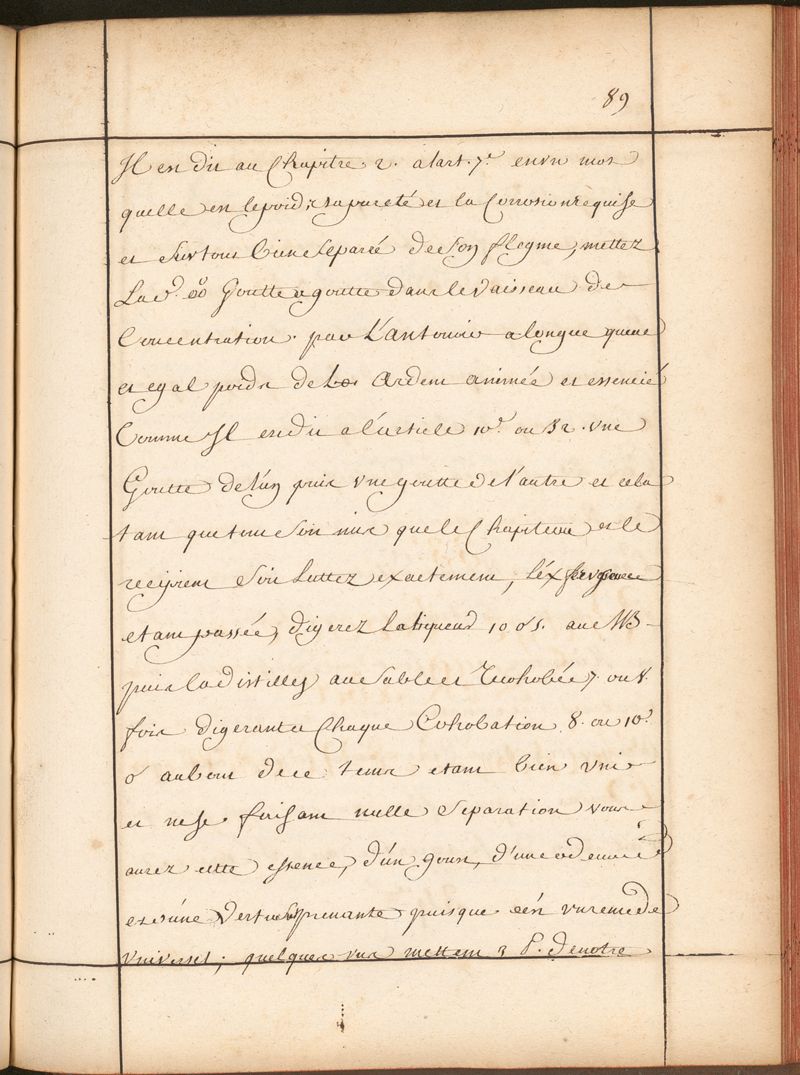 89
Il en dit au Chapitre 2. a lart. 7.e en un mot
quelle en le poid; sa pureté et la Corrosion requise
et Surtout bien Separée de Son flegme, mettez
La Goutte a goutte dans le Vaisseau de
Concentration. par L'antonoir a longue queue
et egal poids de Ardent animée et essencié
Comme Il en dit a l'article 10.e ou 12. une
Goutte de l'un puis une goutte de l'autre et cela
tant que tout Soit mis que le Chapiteau et le
recipient Soit Luttez exactement, l'éx
etant passée, digerez la liqueur 10 au MB
puis la distillez au Sable et Recohobée 7. ou 8.
fois digerant a Chaque Cohobation 8. ou 10.
au bout de ce tems etant bien Unie
et ne se faisant nulle Separation vous
aurez cette essence, d'un goust, d'une odeur
et d'une Vertue puisque c'én un remede
Universel; quelques uns mettent 3 P. de notre